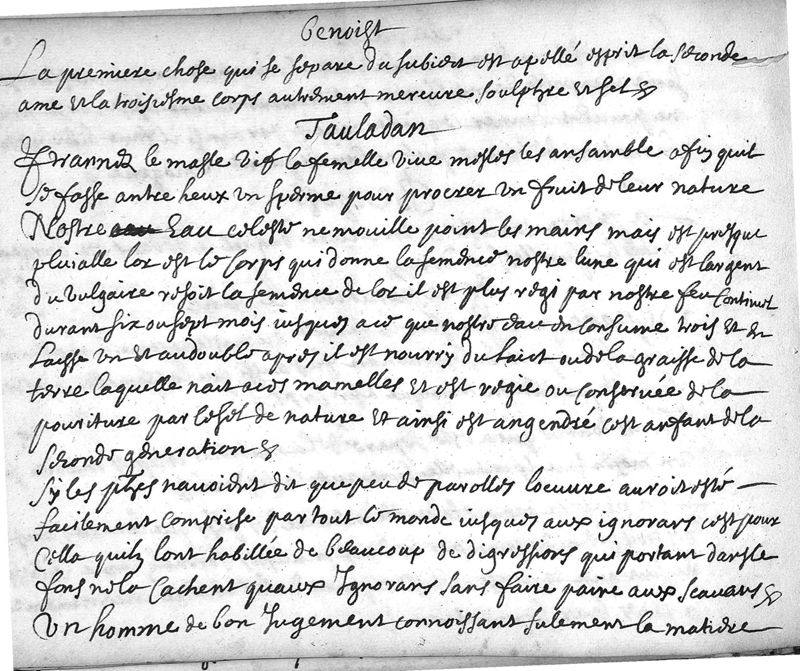 Benoist
La premiere chose qui se separe du subiect est apellé esprit la seconde
ame et la troisiesme corps autrement mercure soulphre et sel
Tauladan
Prannés le masle vif la femelle vive mesles les ansamble afin quil
se fasse antre heux un sperme pour procrer un fruit de leur nature
Nostre eau celeste ne mouille point les mains mais est presque
pluialle lor est le corps qui donne la semence nostre lune qui est largent
du vulgaire resoit la semence de lor il est plus regi par nostre feu continuel
durant six ou sept mois iusques a ce que nostre eau en consume trois et en
laisse un et au double apres il est nourry du laict ou de la graisse de la
terre laquelle nait a ces mamelles et est regie ou conservée de la
pouriture par le sel de nature et ainsi est angendré cest anfant de la
seconde generation
Sy les phes navoient dit que peu de parolles loeuvre auroit esté
facilement comprise par tout le monde iusques aux ignorans cest pour
cella quilz lont habillée de beaucoup de digressions qui portant dans le
fons ne la cachent quaux Ignorans sans faire paine aux scavans
Un homme de bon Jugement connoissant sulement la matiere